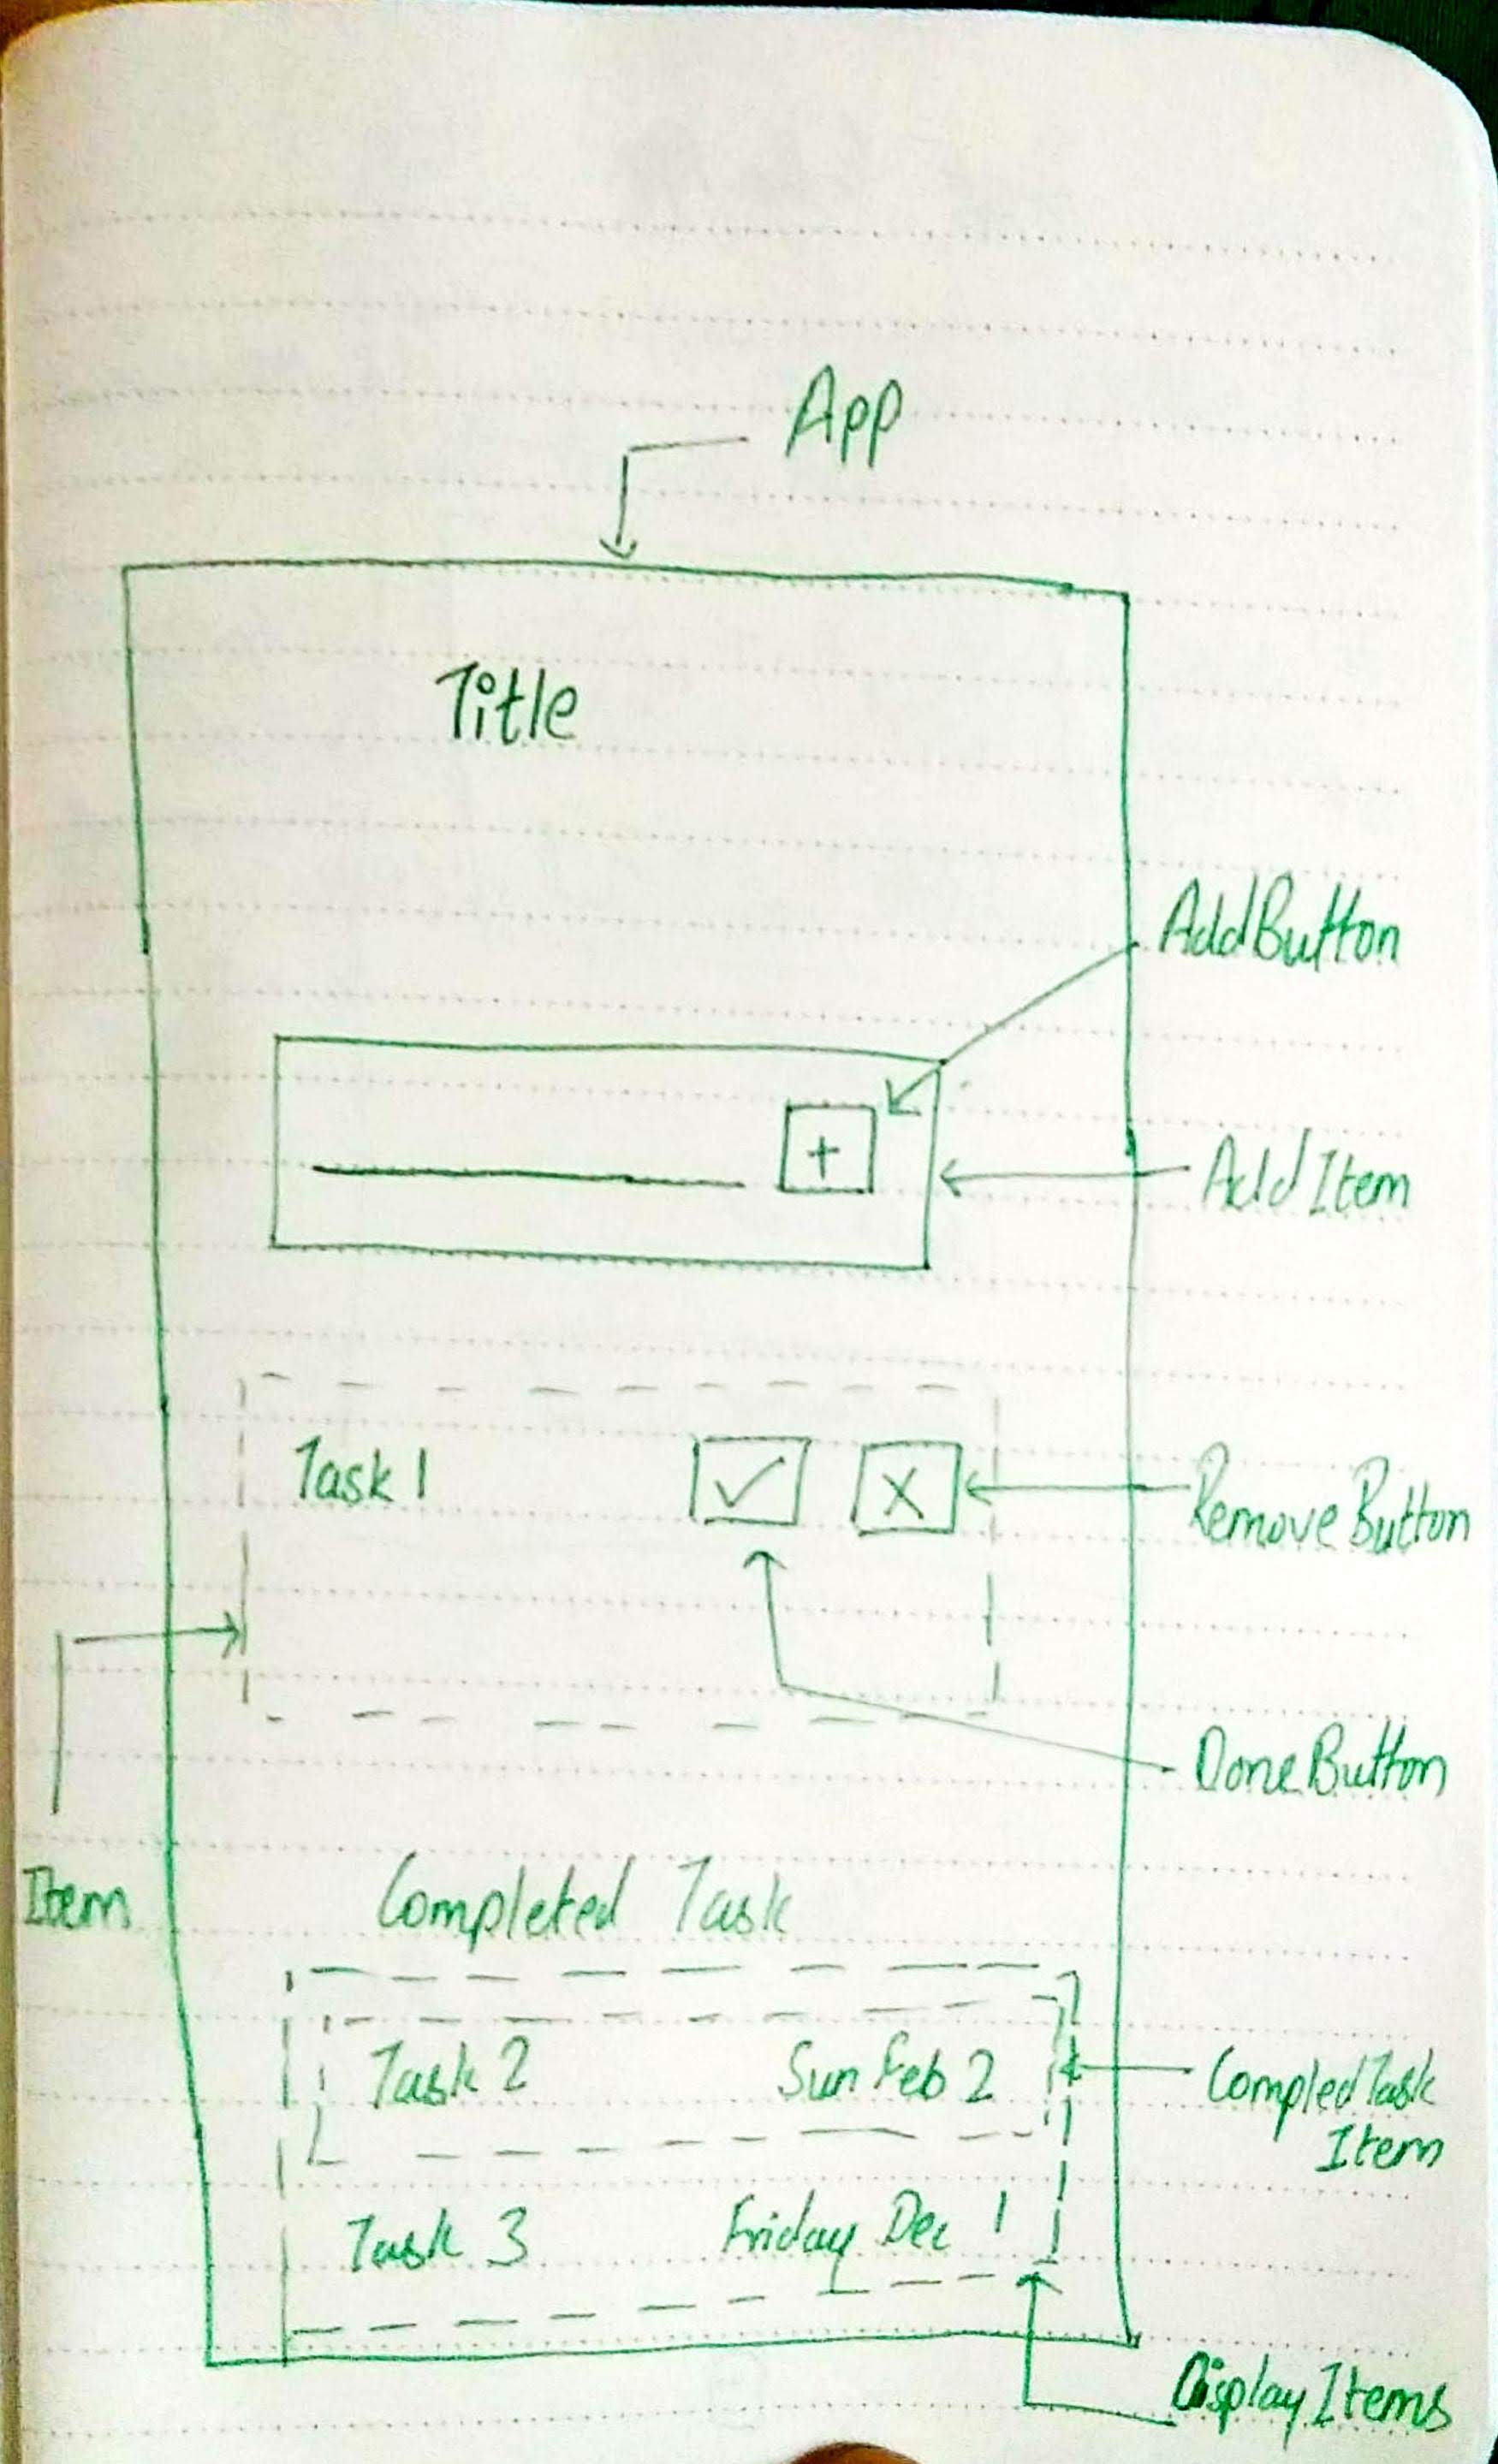 App
Title
AddButton
+
AddItem
Task 1 ✓ X
RemoveButton
DoneButton
Item
Completed Task
Task 2 Sun Feb 2
CompledTask
Item
Task 3 Friday Dec 1
DisplayItems